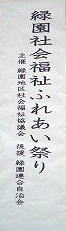 緑園社会福祉ふれあい祭り
主催 緑園地区社会福祉協議会 後援 緑園連合自治会